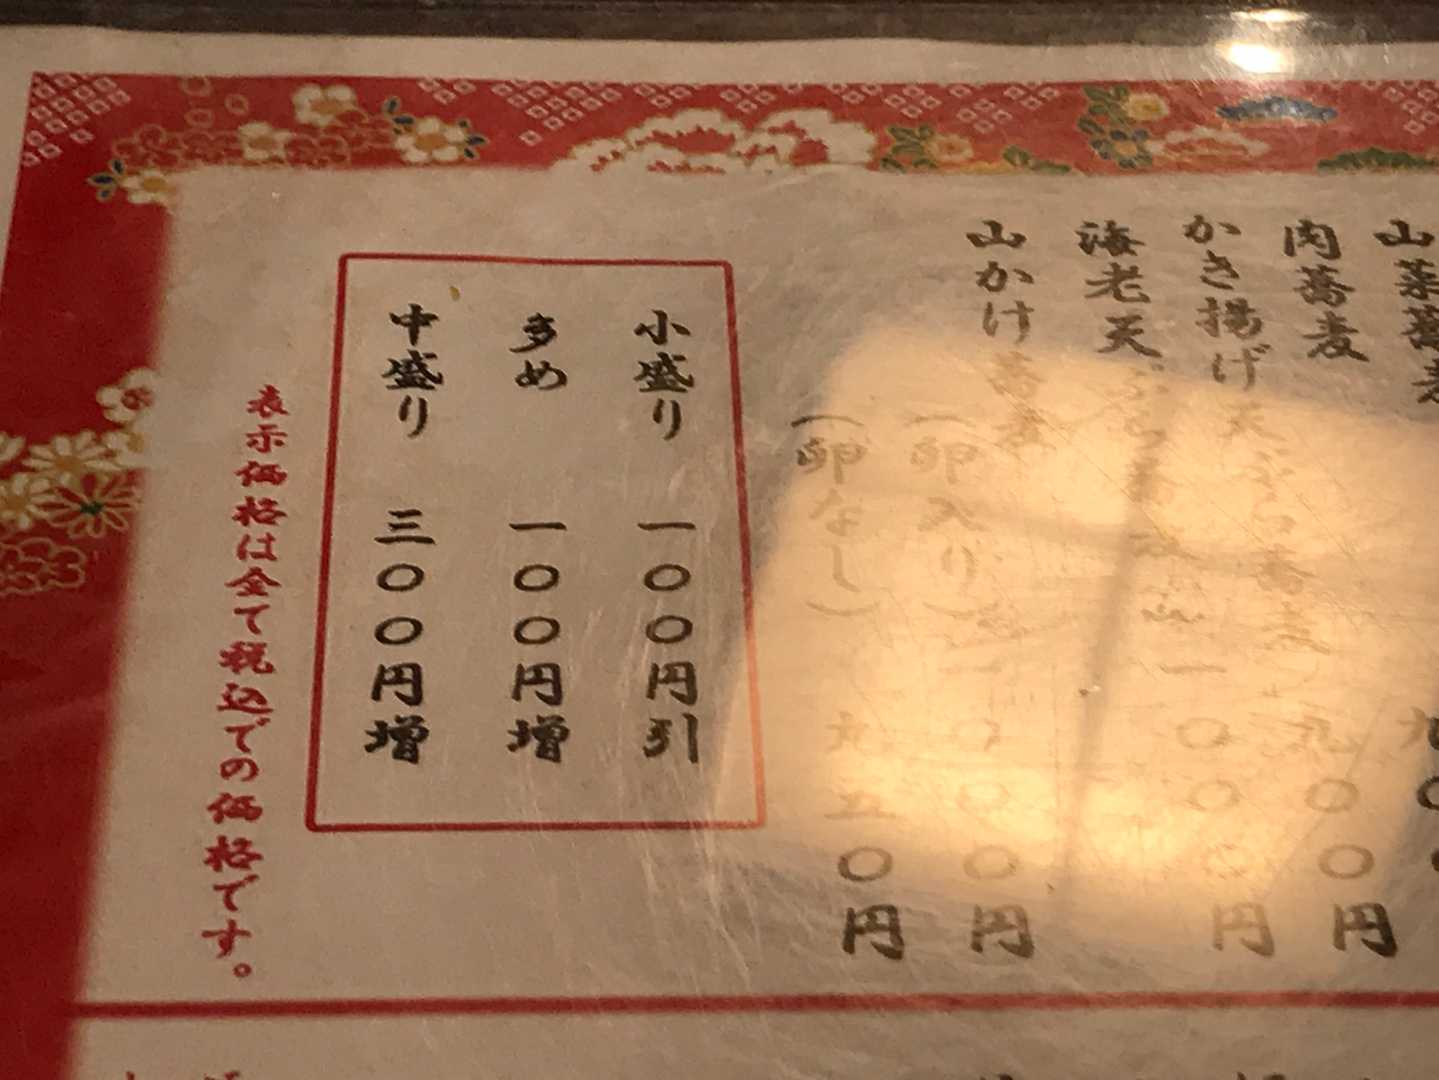 山菜蕎麦
肉蕎麦 九〇〇円
かき揚げ天ぷら蕎麦 一〇〇〇円
海老天ぷら蕎麦
山かけ蕎麦
(卵入り) 一〇〇〇円
(卵なし) 九五〇円
小盛り 一〇〇円引
多め 一〇〇円増
中盛り 三〇〇円増
表示価格は全て税込での価格です。